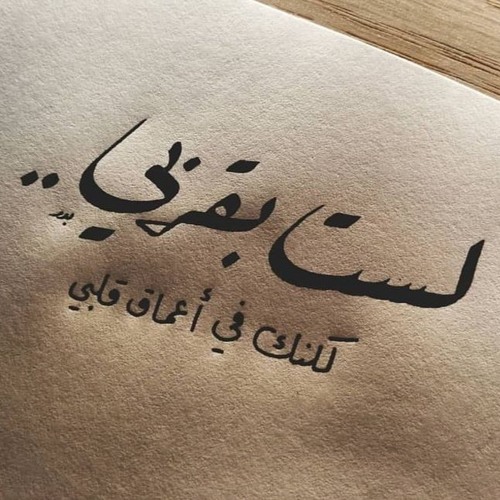 لست بقربي..
لكنك في أعماق قلبي